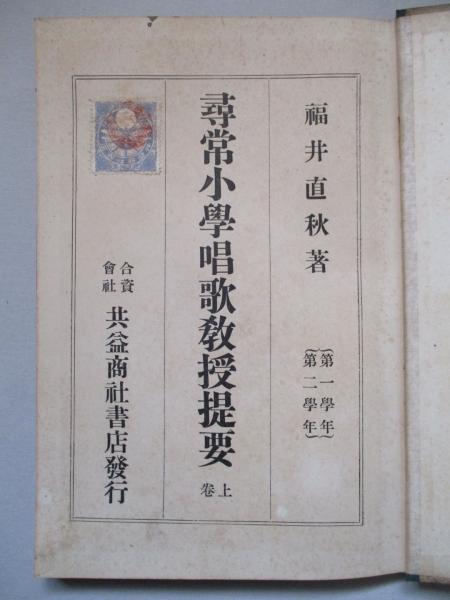 福井直秋著
第一學年
第二學年
尋常小學唱歌教授提要
上卷
合資會社
共益商社書店發行